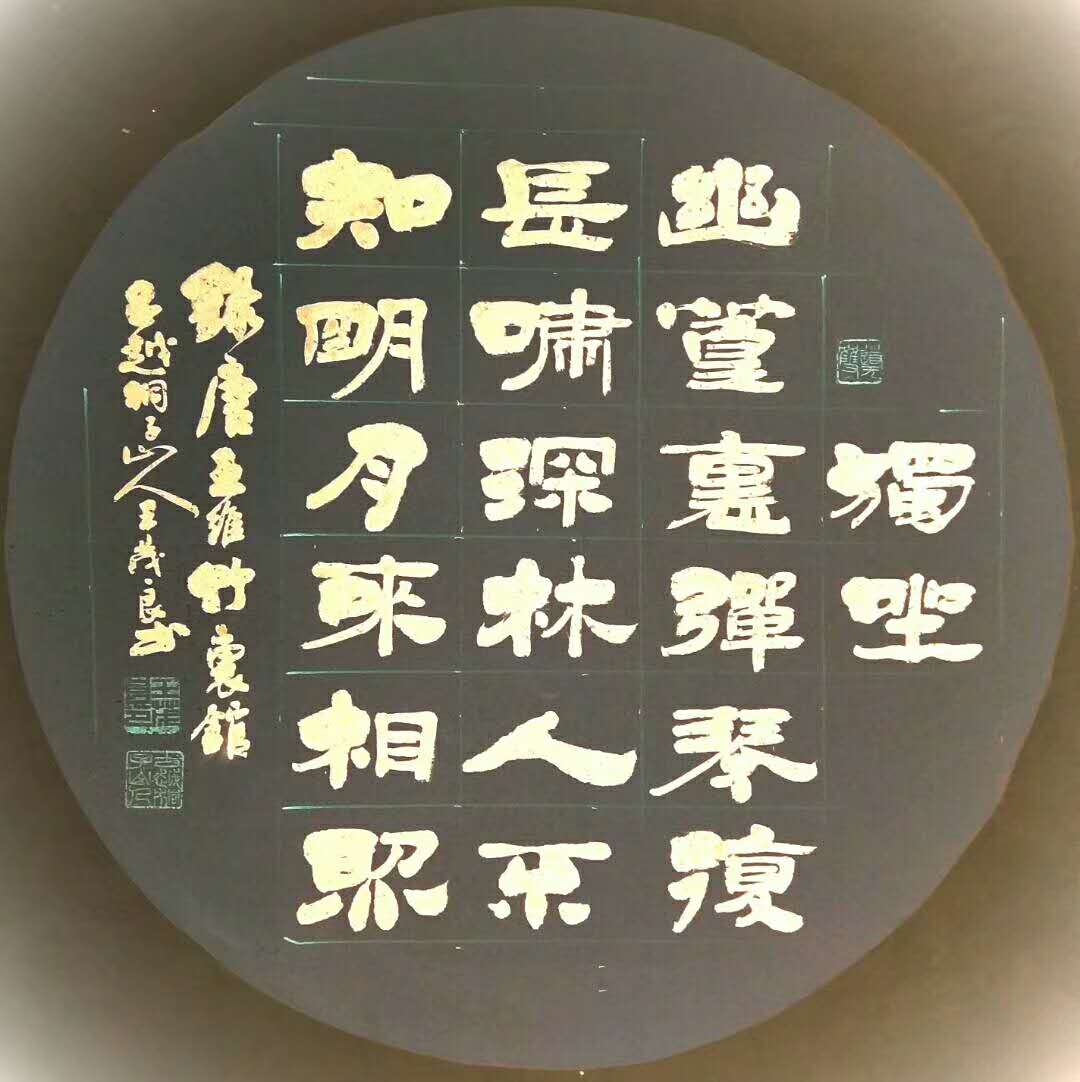 獨坐
幽篁裏彈琴復
長嘯深林人不
知明月来相照
録唐王維竹裏館
古越桐子山人王茂良书